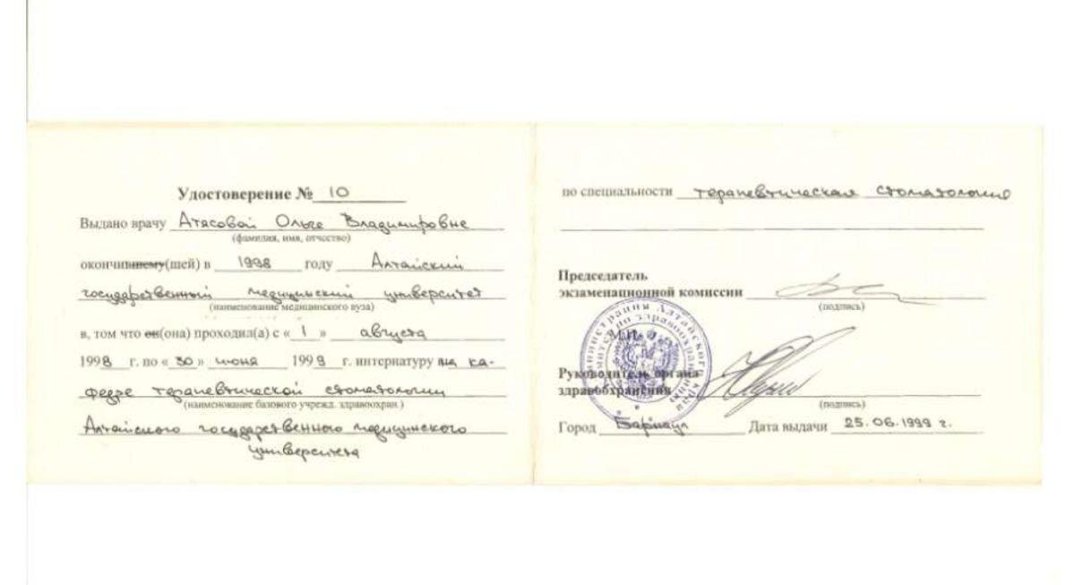 Удостоверение № 10
Выдано врачу Атясовой Ольге Владимировне
(фамилия, имя, отчество)
окончившему(шей) в 1998 году Алтайский
государственный медицинский университет
(наименование медицинского вуза)
в, том что он(она) проходил(а) с « 1 » августа
1998 г. по « 30 » июня 1999 г. интернатуру на ка-
федре терапевтической стоматологии
(наименование базового учрежд. здравоохран.)
Алтайского государственного медицинского
университета
по специальности терапевтическая стоматология
Председатель
экзаменационной комиссии
(подпись)
М.П.
Руководитель органа
здравоохранения
(подпись)
Город Барнаул Дата выдачи 25.06.1999 г.